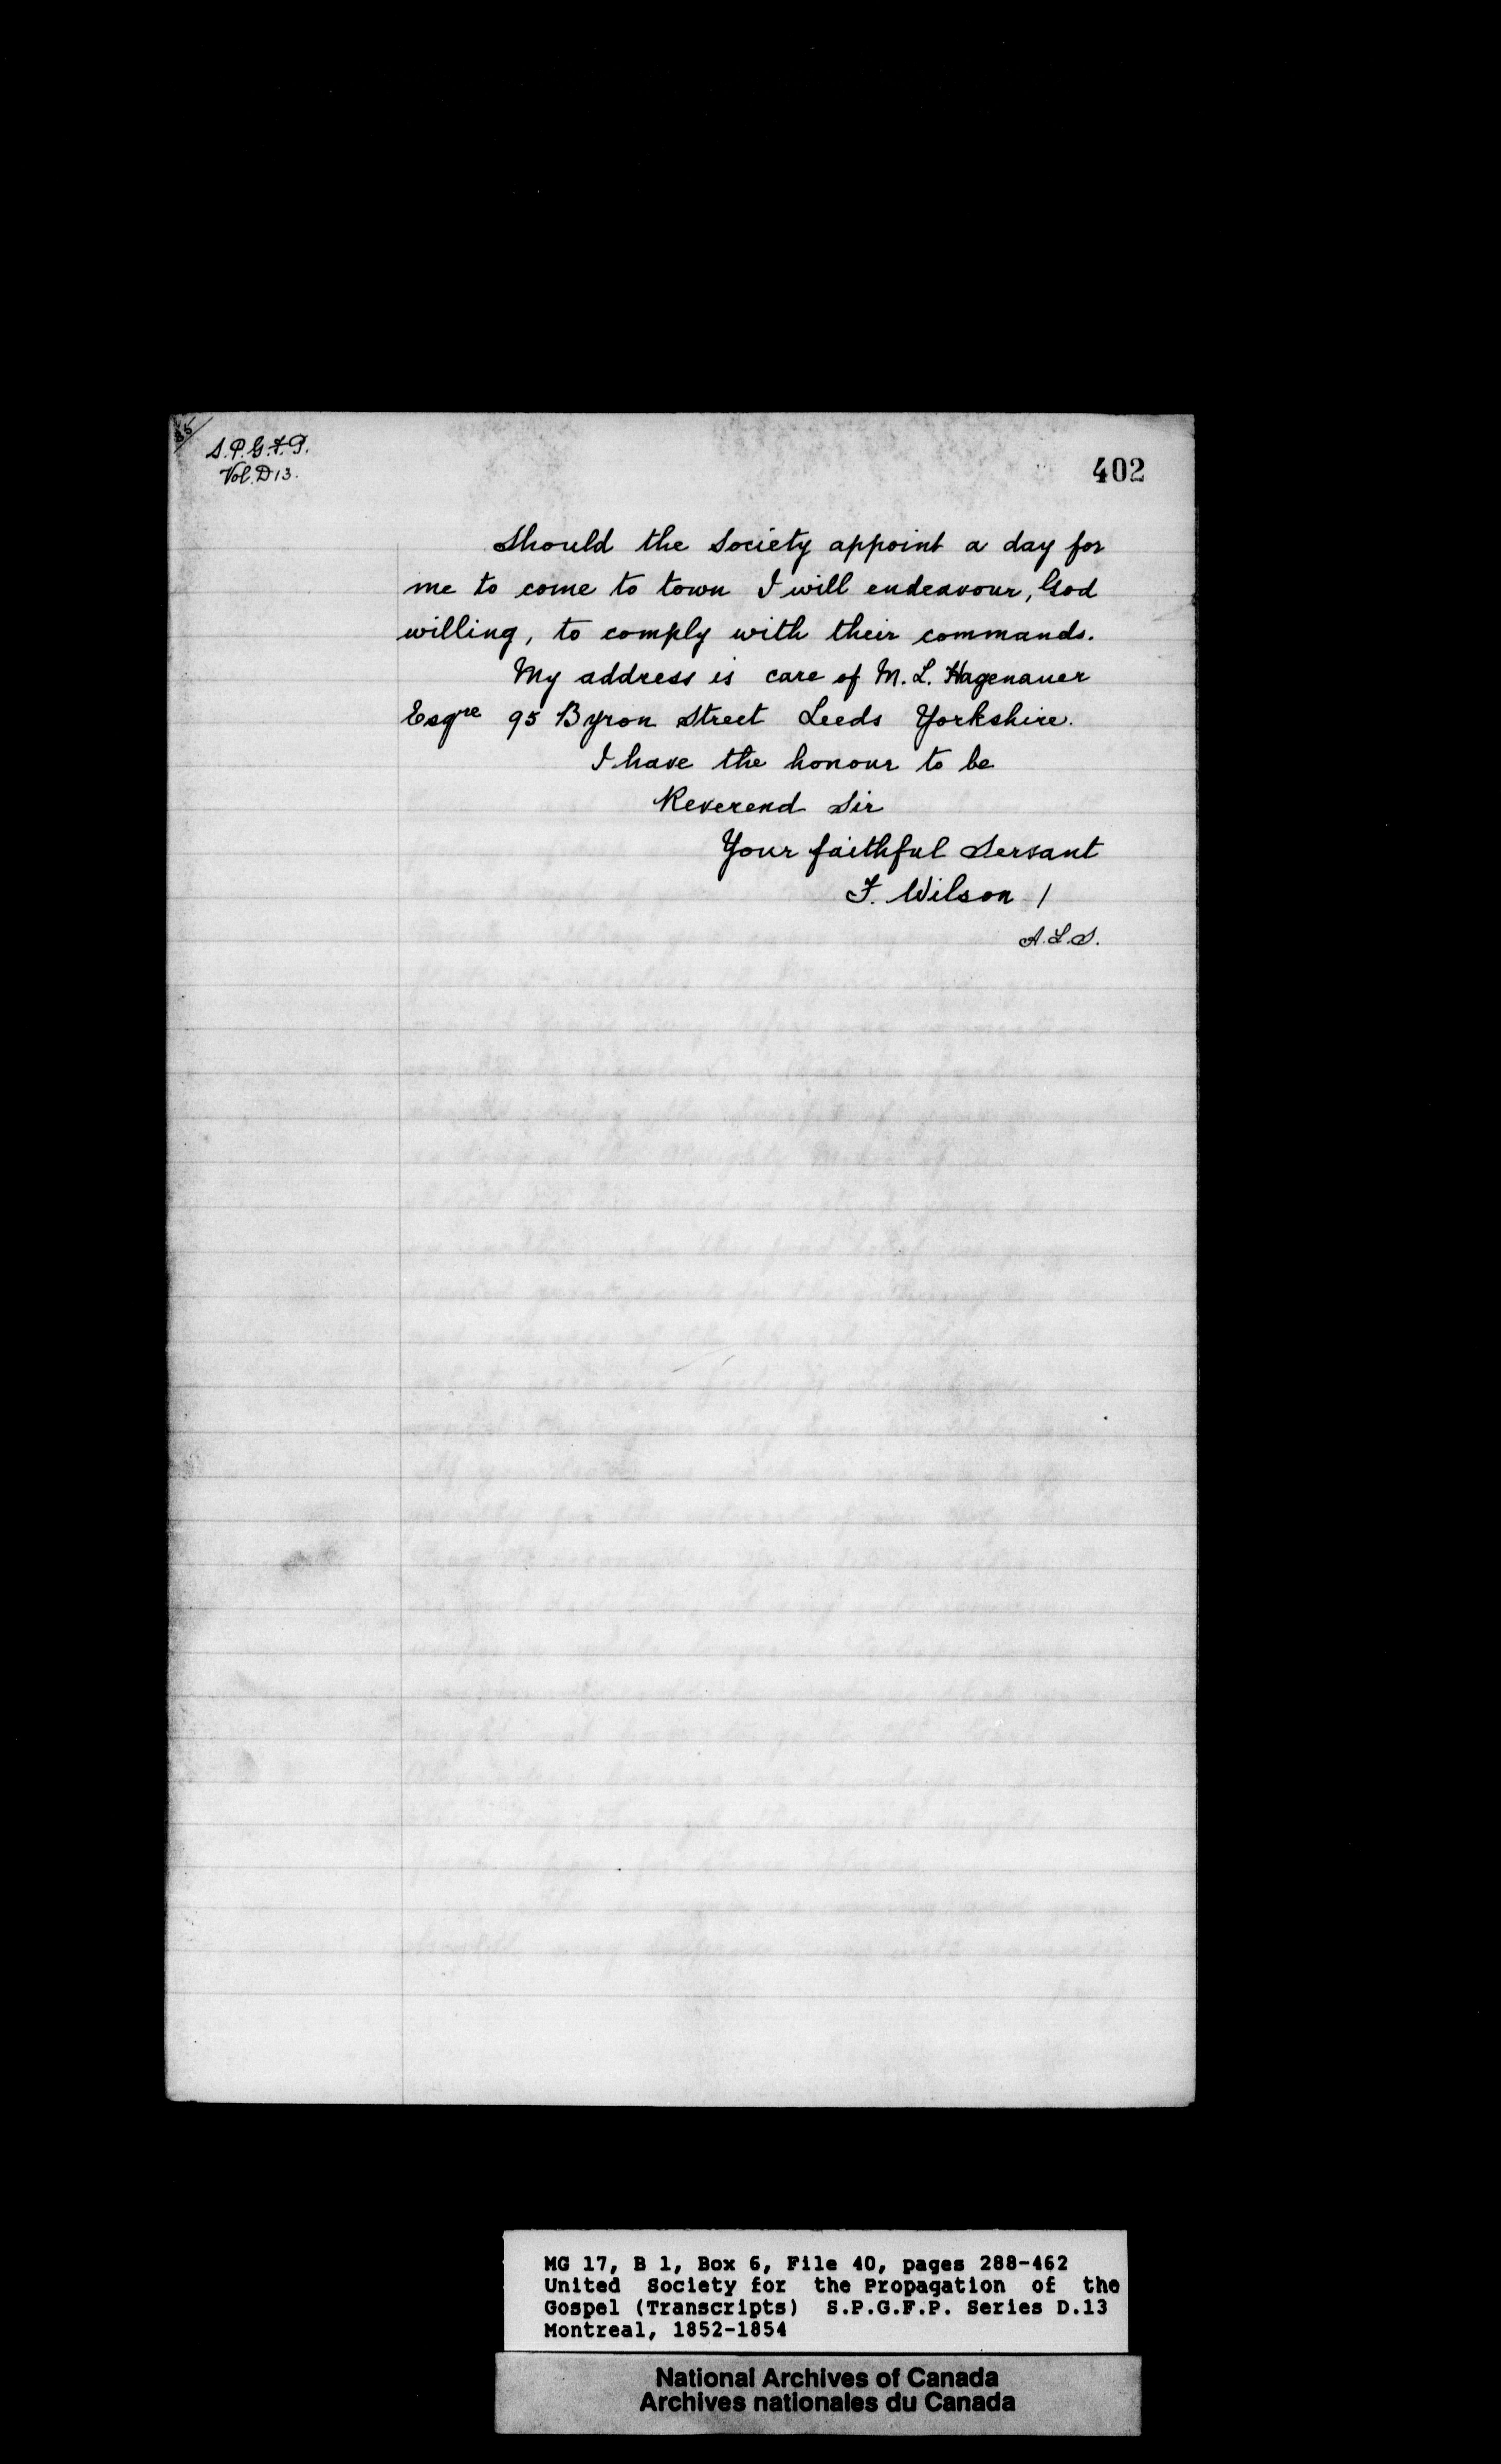 S.P.G.F.P.
Vol. D 13.
402
Should the Society appoint a day for
me to come to town I will endeavour, God
willing, to comply with their commands.
My address is care of M. L. Hagenauer
Esqre 95 Byron Street Leeds Yorkshire.
I have the honour to be
Reverend Sir
Your faithful Servant
F. Wilson /
A.L.S.
MG 17, B 1, Box 6, File 40, pages 288-462
United Society for the Propagation of the
Gospel (Transcripts) S.P.G.F.P. Series D.13
Montreal, 1852-1854
National Archives of Canada
Archives nationales du Canada